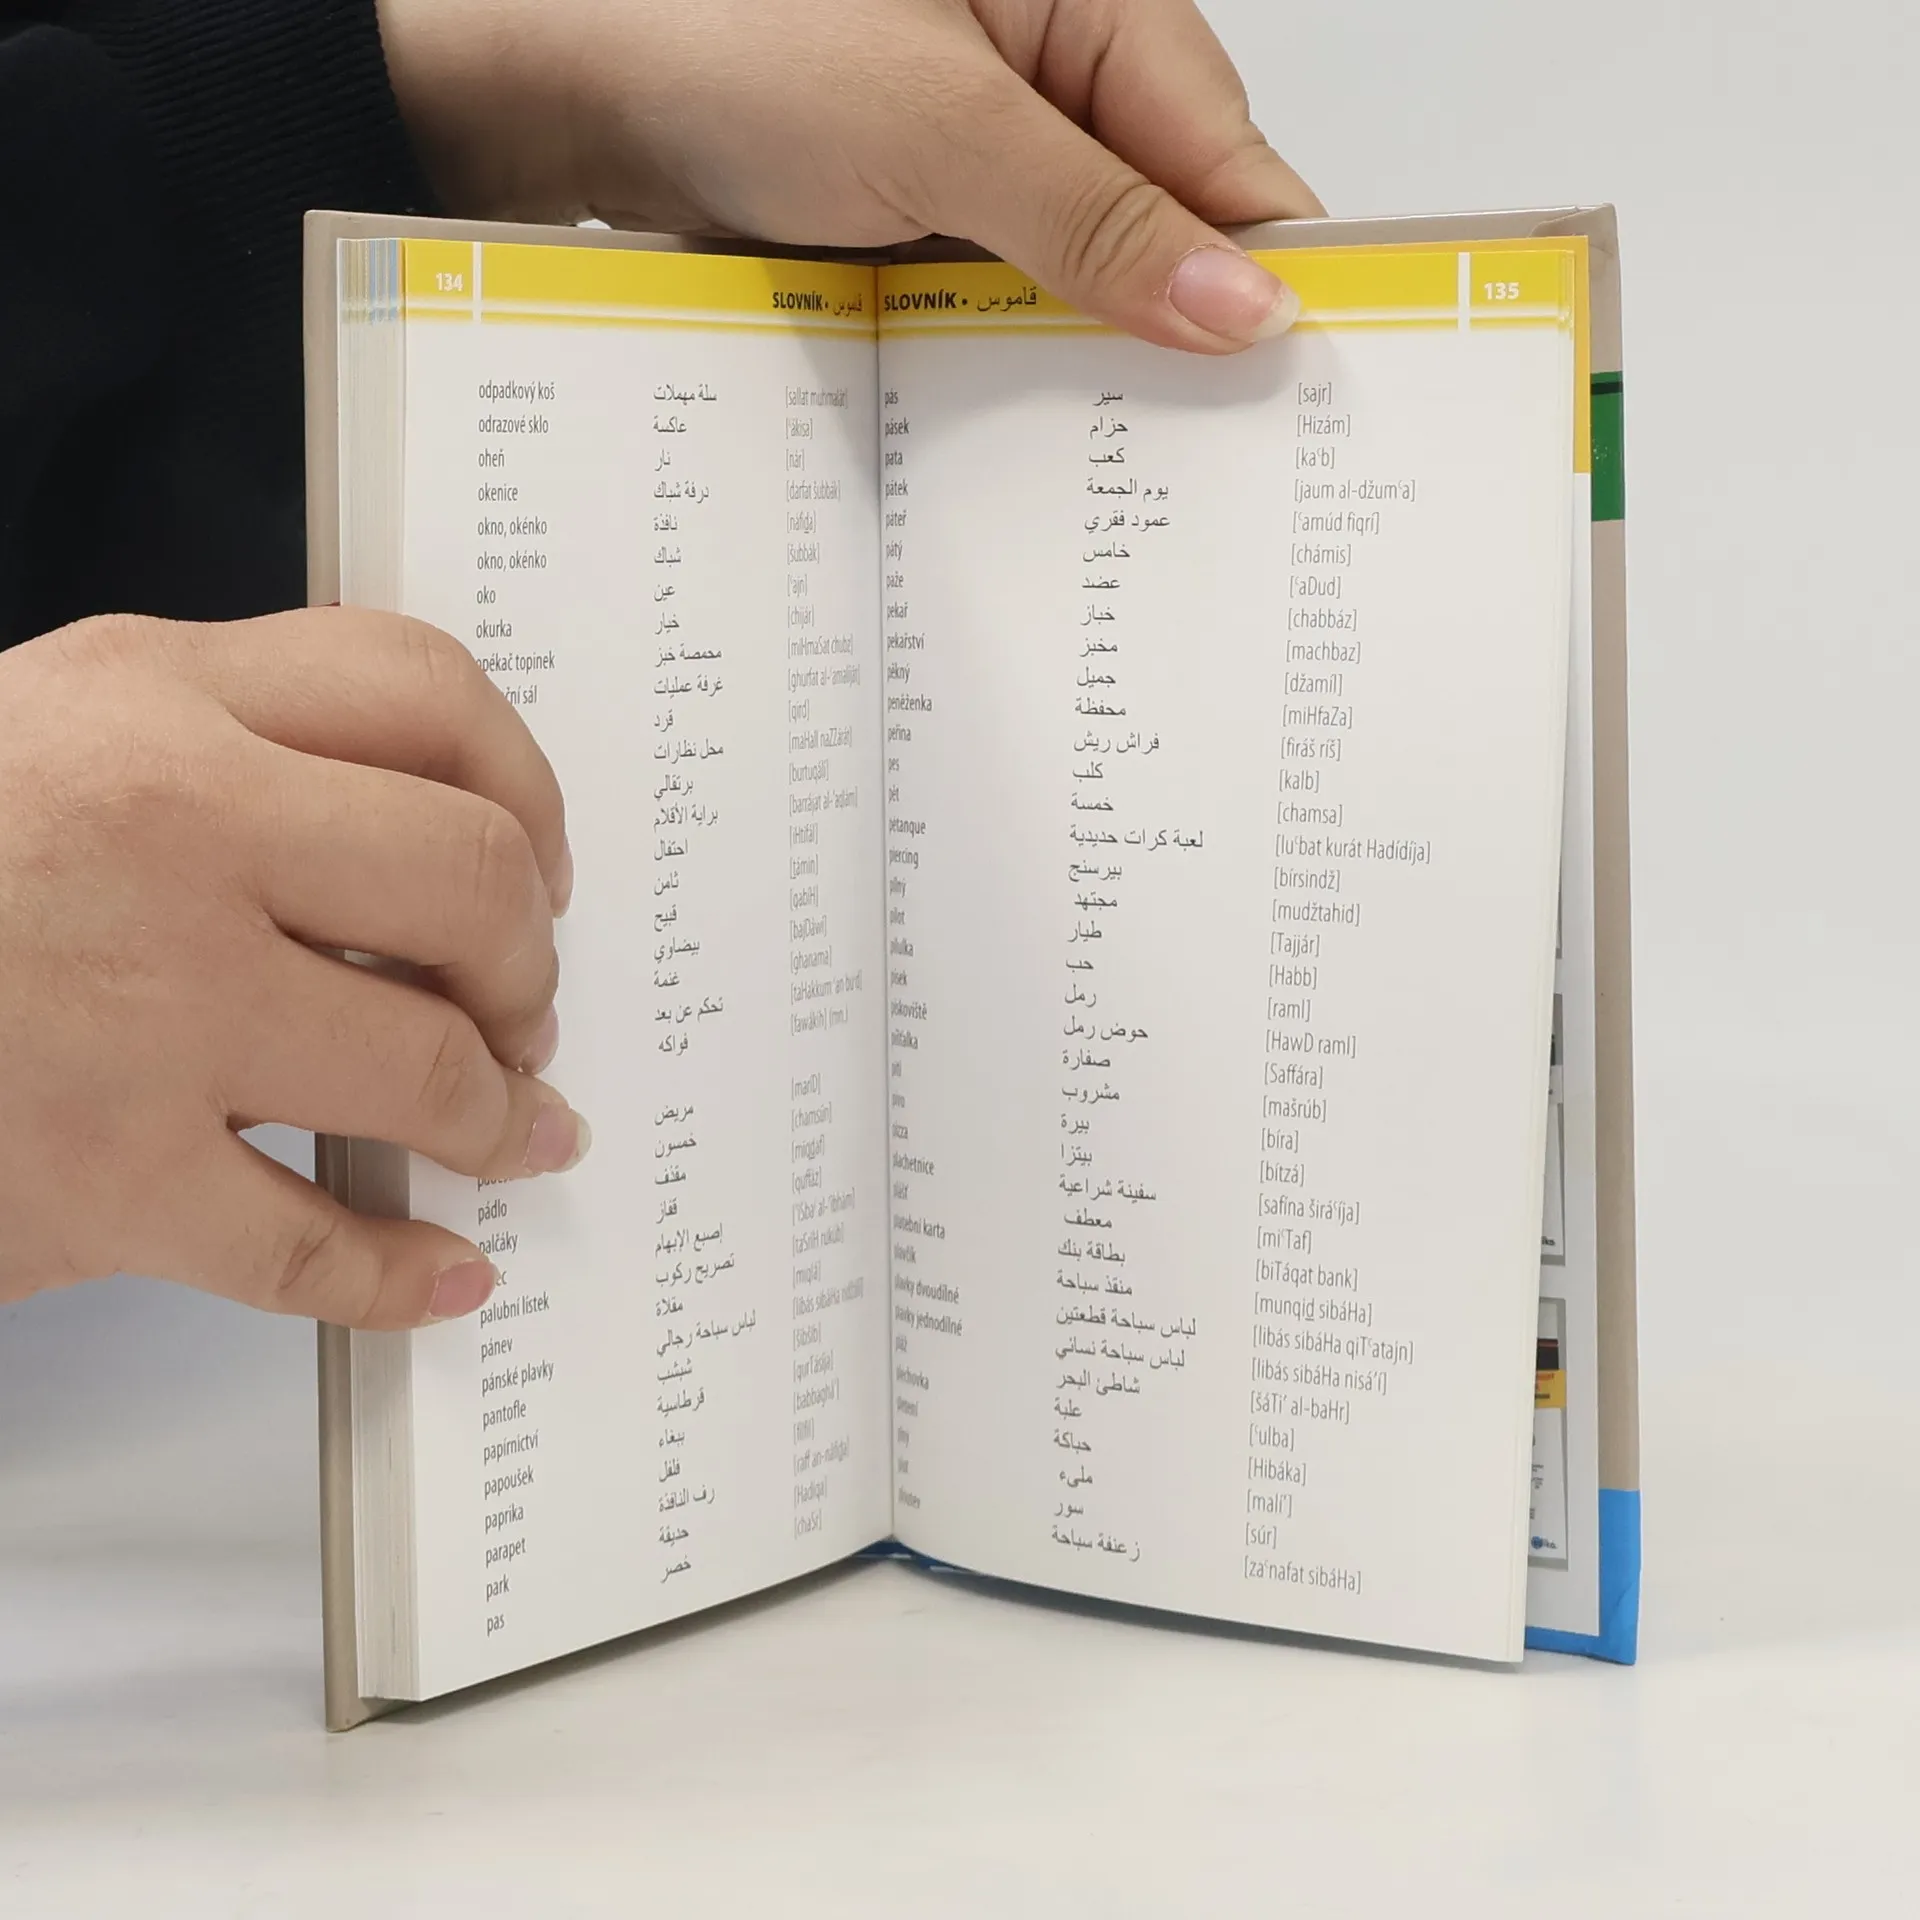 134
SLOVNÍK • قاموس
odpadkový koš سلة مهملات [sallat muhmalát]
odrazové sklo عاكسة [ʿákisa]
oheň نار [nár]
okenice درفة شباك [darfat šubbák]
okno, okénko نافذة [náfiḏa]
okno, okénko شباك [šubbák]
oko عين [ʿajn]
okurka خيار [chijár]
opékač topinek محمصة خبز [miHmaSat chubz]
sál غرفة عمليات [ghurfat al-ʿamalíját]
قرد [qird]
محل نظارات [maHall naZZárát]
برتقالي [burtuqálí]
براية الأقلام [barráját al-ʾaqlám]
احتفال [iHtifál]
ثامن [ṯámin]
قبيح [qabíH]
بيضاوي [bajDáwí]
غنمة [ghanama]
تحكم عن بعد [taHakkum ʿan buʿd]
فواكه [fawákih] (mn.)
مريض [maríD]
خمسون [chamsún]
pádlo مقذف [miqḏaf]
palčáky قفاز [quffáz]
إصبع الإبهام [ʾiSbaʿ al-ʾibhám]
palubní lístek تصريح ركوب [taSríH rukúb]
pánev مقلاة [miqlá]
pánské plavky لباس سباحة رجالي [libás sibáHa ridžálí]
pantofle شبشب [šibšib]
papírnictví قرطاسية [qurTásíja]
papoušek ببغاء [babbaghá’]
paprika فلفل [filfil]
parapet رف النافذة [raff an-náfiḏa]
park حديقة [Hadíqa]
pas خصر [chaSr]
SLOVNÍK • قاموس
135
pás سير [sajr]
pásek حزام [Hizám]
pata كعب [kaʿb]
pátek يوم الجمعة [jaum al-džumʿa]
páteř عمود فقري [ʿamúd fiqrí]
pátý خامس [chámis]
paže عضد [ʿaDud]
pekař خباز [chabbáz]
pekařství مخبز [machbaz]
pěkný جميل [džamíl]
peněženka محفظة [miHfaZa]
peřina فراش ريش [firáš ríš]
pes كلب [kalb]
pět خمسة [chamsa]
pétanque لعبة كرات حديدية [luʿbat kurát Hadídíja]
piercing بيرسنج [bírsindž]
pilný مجتهد [mudžtahid]
pilot طيار [Tajjár]
pilulka حب [Habb]
písek رمل [raml]
pískoviště حوض رمل [HawD raml]
píšťalka صفارة [Saffára]
pití مشروب [mašrúb]
pivo بيرة [bíra]
pizza بيتزا [bítzá]
plachetnice سفينة شراعية [safína širáʿíja]
plášť معطف [miʿTaf]
platební karta بطاقة بنك [biTáqat bank]
plavčík منقذ سباحة [munqiḏ sibáHa]
plavky dvoudílné لباس سباحة قطعتين [libás sibáHa qiTʿatajn]
plavky jednodílné لباس سباحة نسائي [libás sibáHa nisá’í]
pláž شاطئ البحر [šáTi’ al-baHr]
plechovka علبة [ʿulba]
pletení حباكة [Hibáka]
plný مليء [malí’]
plot سور [súr]
ploutev زعنفة سباحة [zaʿnafat sibáHa]